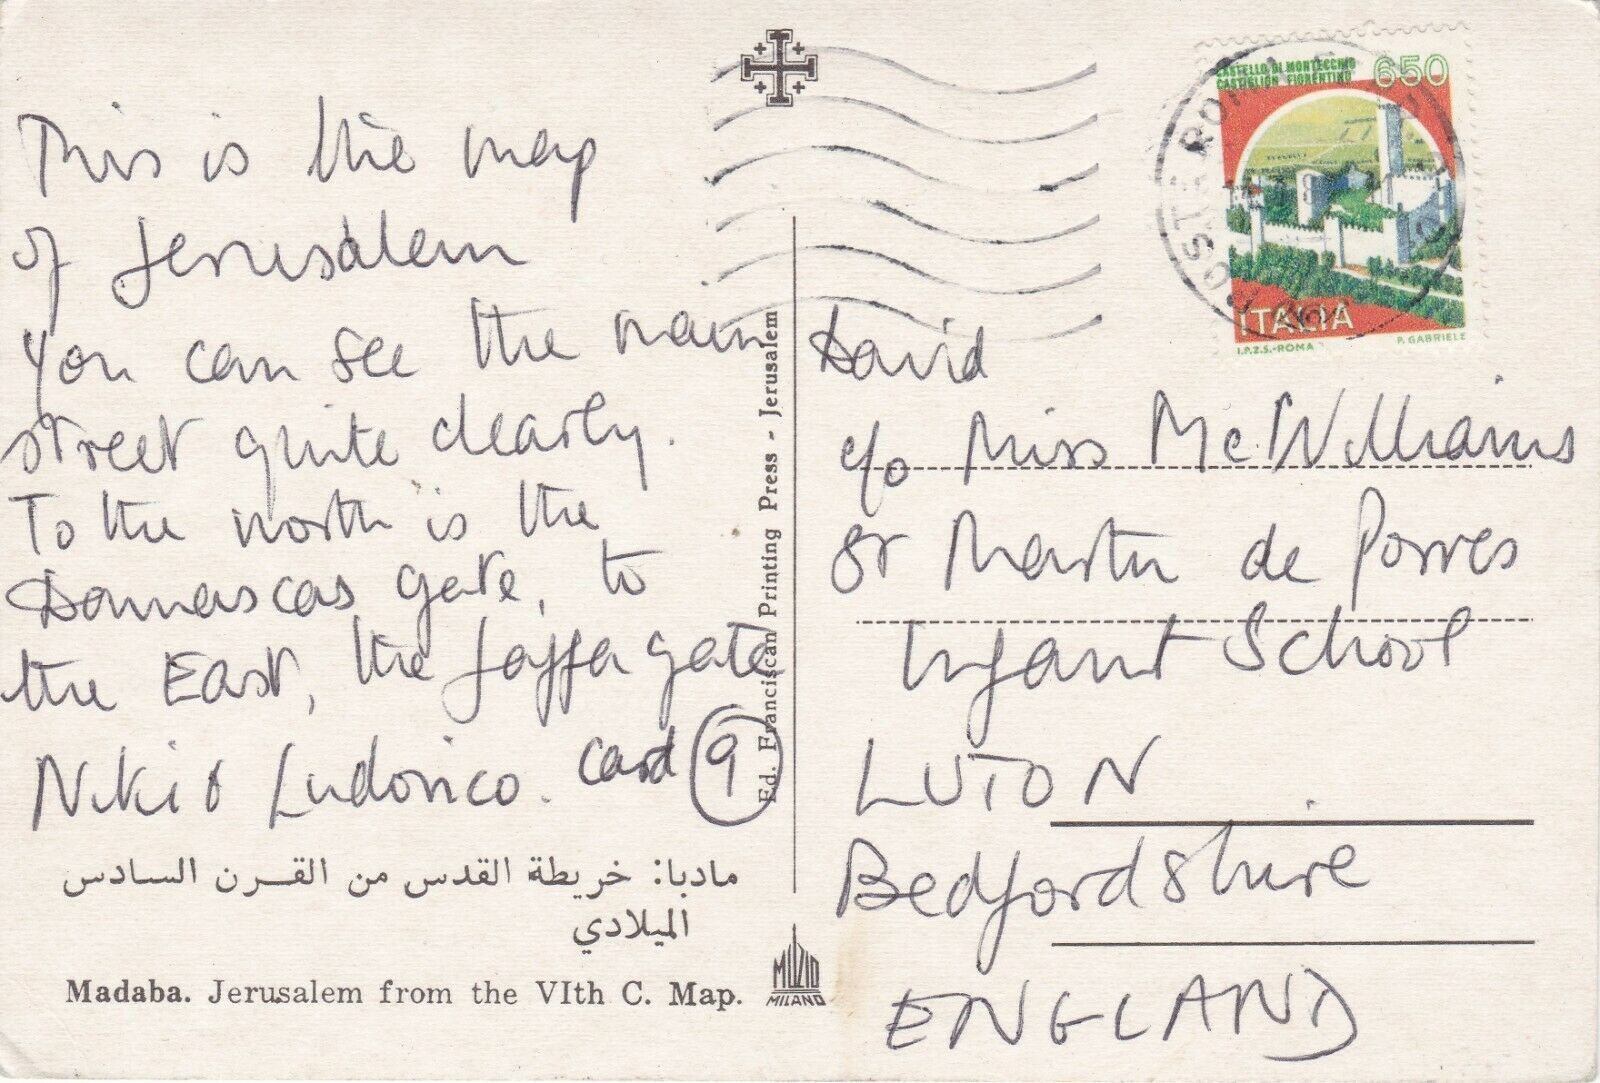 This is the map
of Jerusalem
You can see the main
street quite clearly.
To the north is the
Damascas gate, to
the East, the Jaffa gate
Niki & Ludovico. Card 9
مادبا: خريطة القدس من القرن السادس
الميلادي
Madaba. Jerusalem from the VIth C. Map.
Ed. Franciscan Printing Press - Jerusalem
MUZIO
MILANO
CASTELLO DI MONTECCHIO
CASTIGLION FIORENTINO
650
ITALIA
I.P.Z.S.-ROMA P. GABRIELE
POSTE ROMA
David
c/o Miss McWilliams
St Martin de Porres
Infant School
LUTON
Bedfordshire
ENGLAND